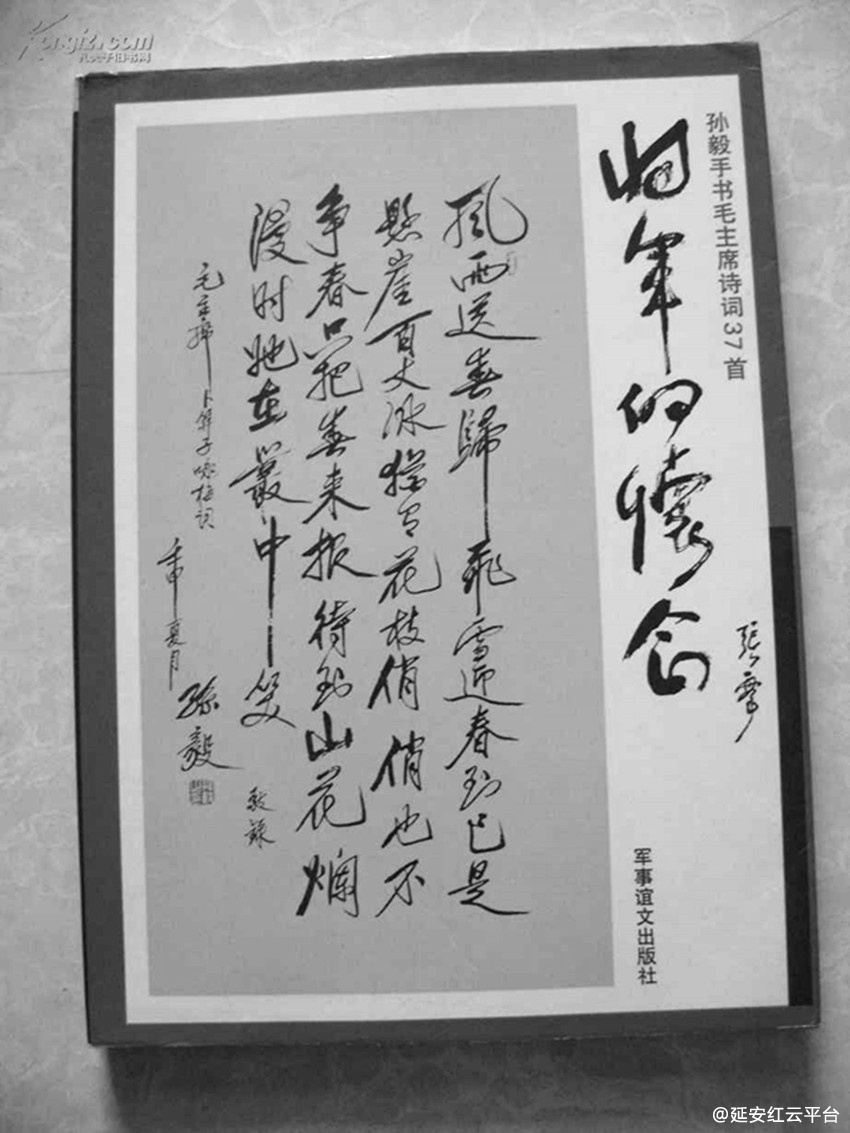 Kongfz.com
孔夫子旧书网
孙毅手书毛主席诗词37首
将军的懷念
张震
風雨送春歸飛雪迎春到已是
懸崖百丈冰猶有花枝俏俏也不
争春只把春来报待到山花爛
漫时她在叢中笑
敬録
毛主席卜算子咏梅词
壬申夏月
孫毅
军事谊文出版社
@延安红云平台